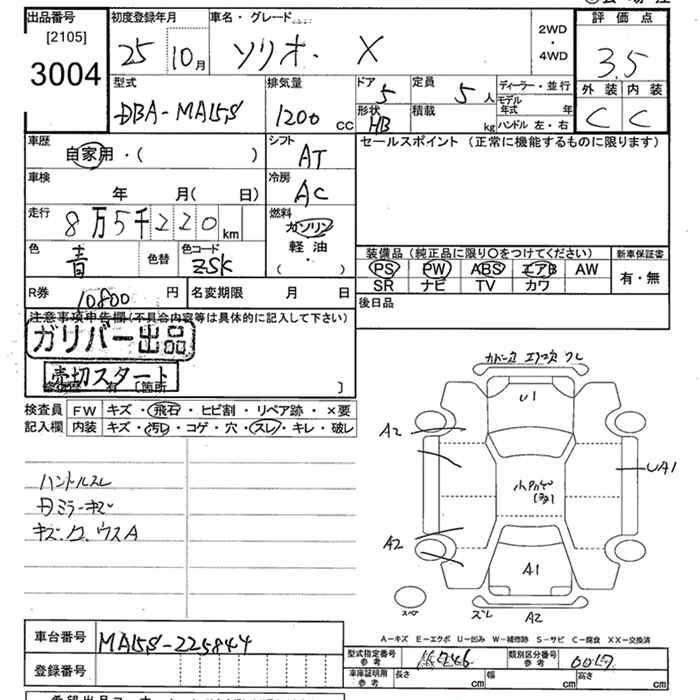 出品番号 初度登録年月 車名・グレード 評価点
[2105] 25 10月 ソリオ. X 2WD・4WD 3.5
3004
型式 排気量 ドア 5 定員 5人 ディーラー・並行 外装 内装
DBA-MA15S 1200 CC 形状 HB 積載 kg モデル年式 年 C C
ハンドル 左・右
車歴 シフト セールスポイント (正常に機能するものに限ります)
自家用・( ) AT
車検 冷房
年 月( 日) AC
走行 8万5千220km 燃料
ガソリン
色 青 色替 色コード ZSK 軽油
( )
装備品 (純正品に限り○をつけてください) 新車保証書
PS PW ABS エアB AW 有・無
SR ナビ TV カワ
R券 10800円 名変期限 月 日 後日品
注意事項申告欄(不具合内容等は具体的に記入して下さい)
ガリバー出品
売切スタート
有 [箇所 ]
検査員 FW キズ・飛石・ヒビ割・リペア跡・×要
記入欄 内装 キズ・汚レ・コゲ・穴・スレ・キレ・破レ
ハンドルスレ
キズ
ウスA
U1
A2
UA1
A2
A1
スレ A2
A-キズ E-エクボ U-凹み W-補修跡 S-サビ C-腐食 XX-交換済
車台番号 MA15S-225844
型式指定番号 参考 類別区分番号 参考
登録番号 車庫証明用 参考 長さ cm 幅 cm 高さ cm